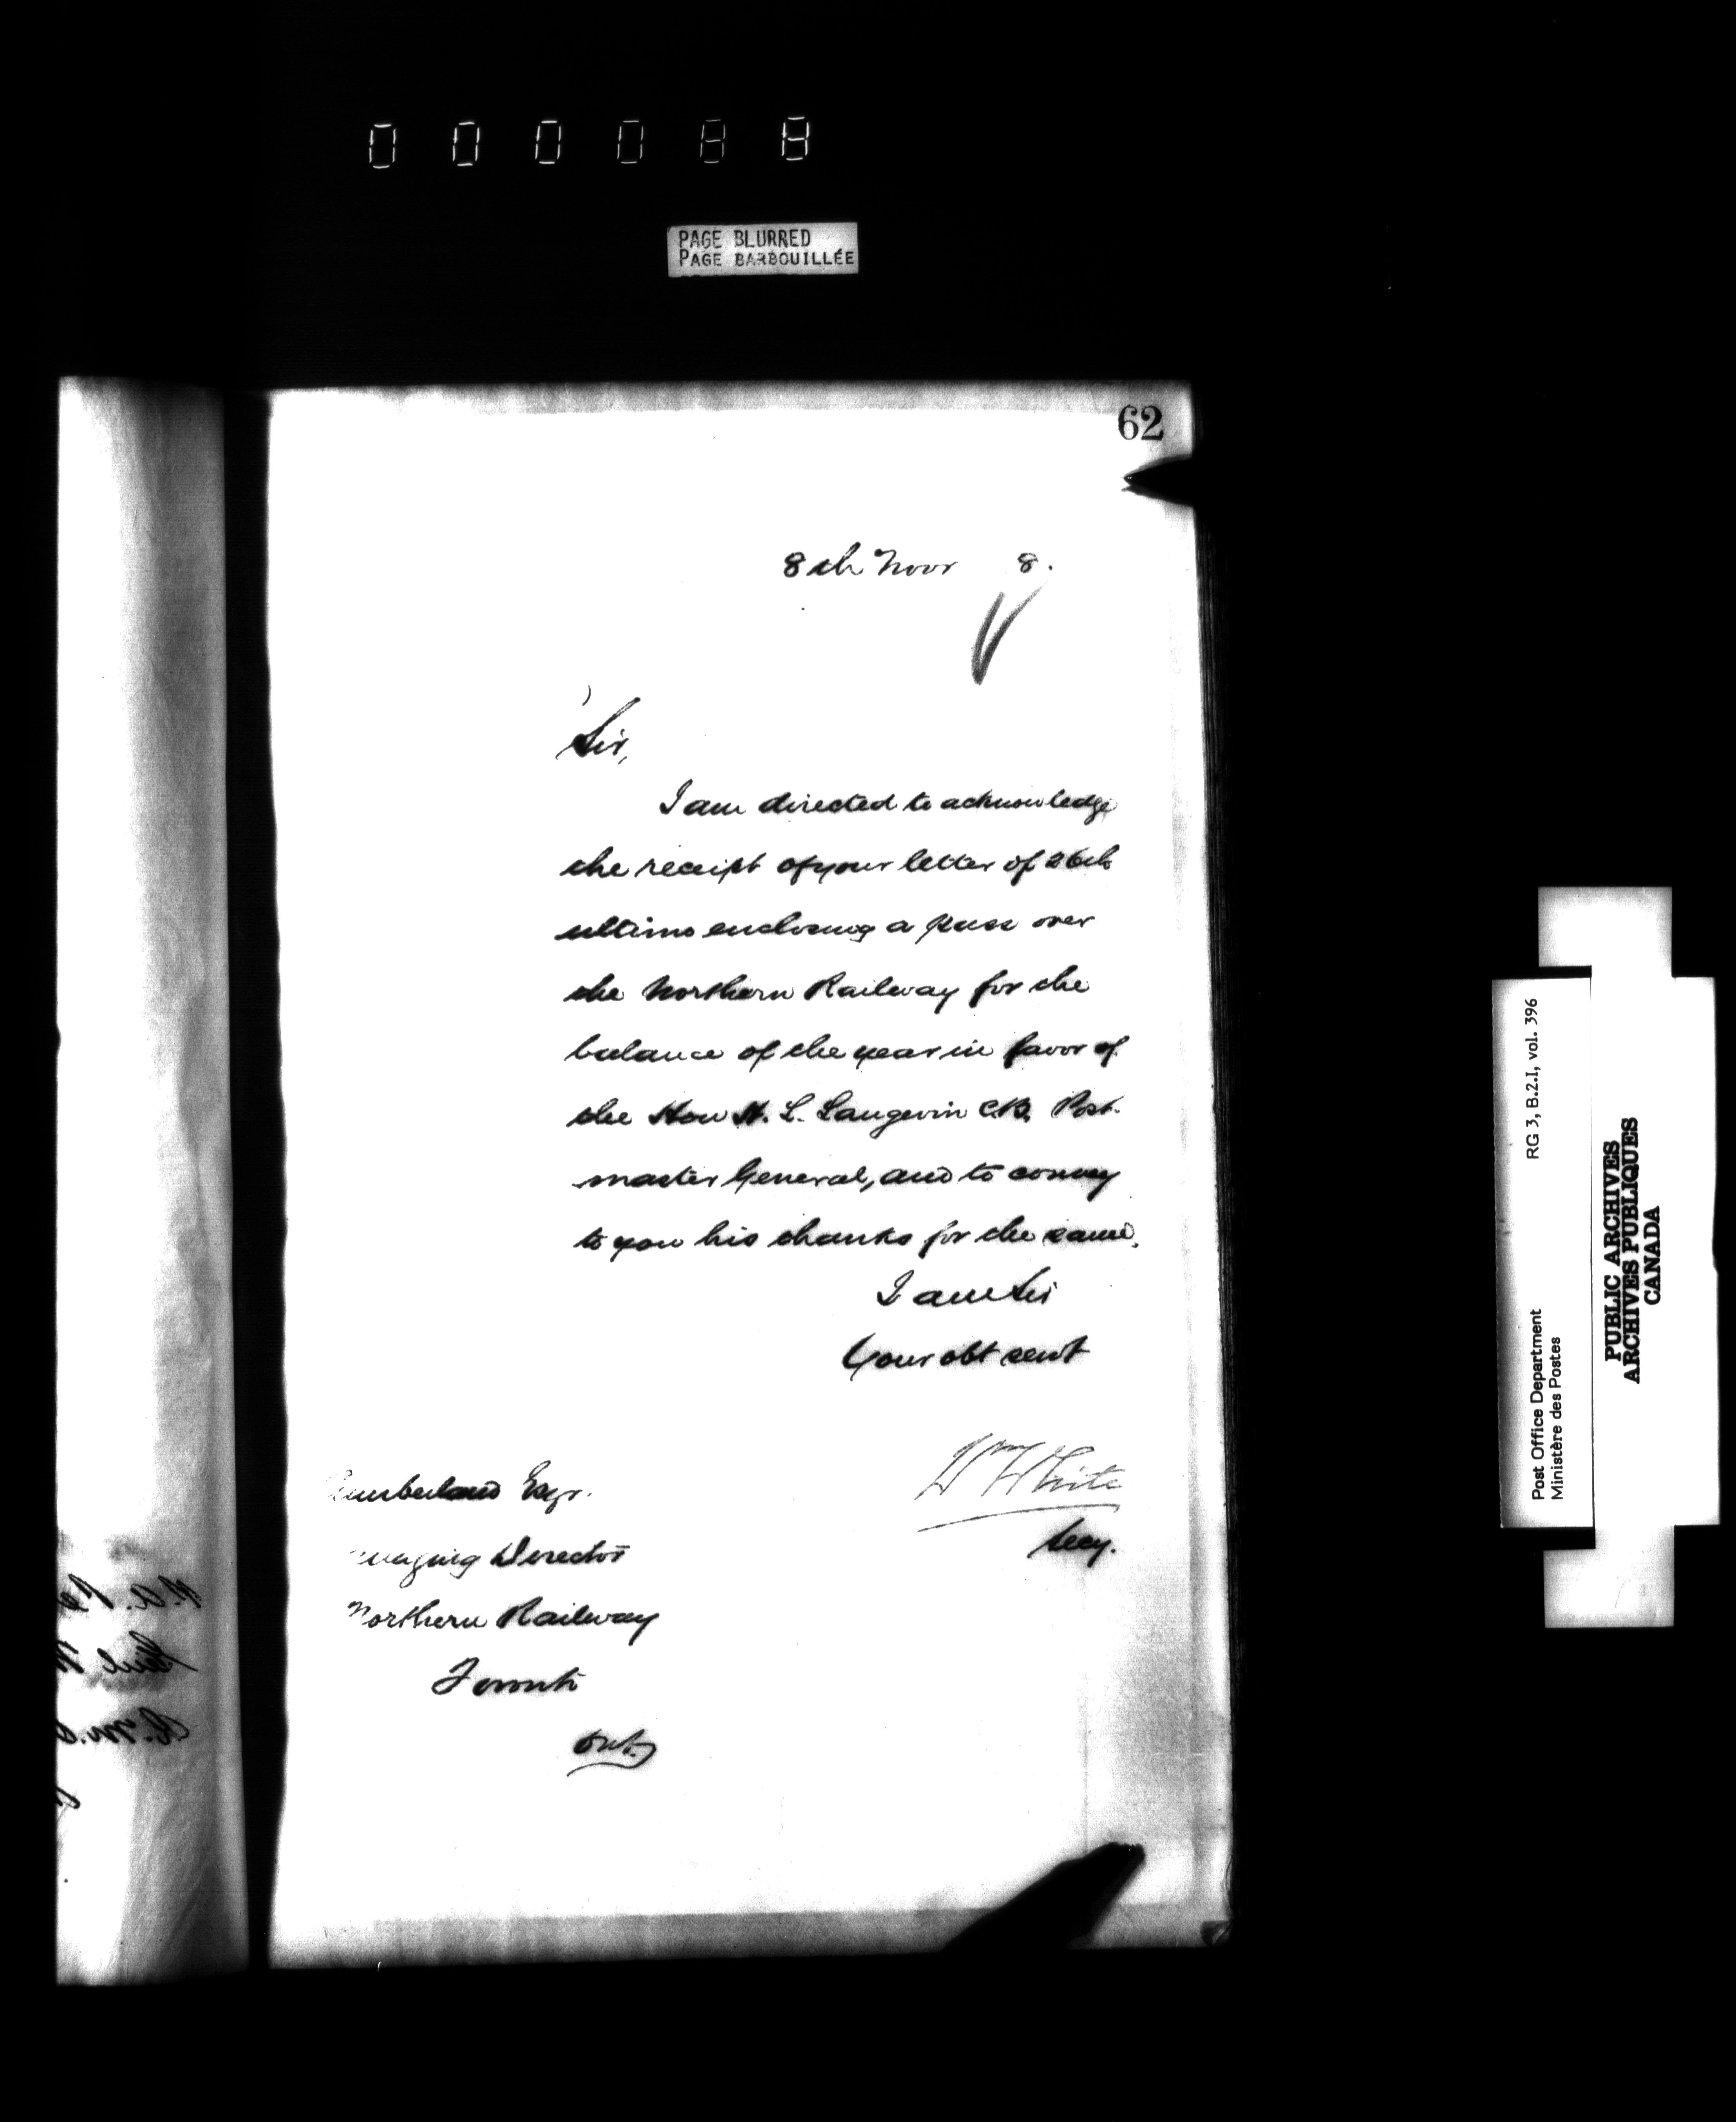 000088
PAGE BLURRED
PAGE BARBOUILLÉE
62
8th Novr 8.
Sir,
I am directed to acknowledge
the receipt of your letter of 26th
ultimo enclosing a pass over
the Northern Railway for the
balance of the year in favor of
the Hon H. L. Langevin C.B. Post.
master General, and to convey
to you his thanks for the same.
I am Sir
Your obt servt
Wm White
Secy.
Cumberland Esqr.
naging Director
Northern Railway
Toronto
Ont.
RG 3, B.2.I, vol. 396
Post Office Department
Ministère des Postes
PUBLIC ARCHIVES
ARCHIVES PUBLIQUES
CANADA